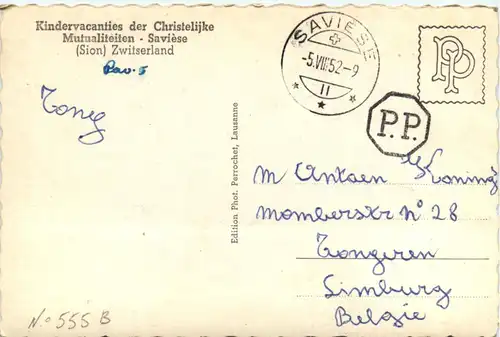 Kindervacanties der Christelijke
Mutualiteiten - Savièse
(Sion) Zwitserland
Pav. 5
Tony
SAVIÈSE
-5.VII.52-9
11
PP
P.P.
Edition Phot. Perrochet, Lausanne
M Antoen de Koning
Momberstr N° 28
Tongeren
Limburg
Belgie
N.° 555 B